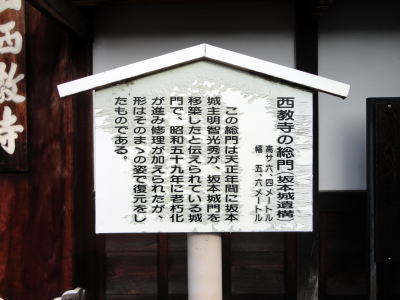 西教寺の総門 坂本城遺構
高サ六、四メートル
幅 五、六メートル
この総門は天正年間に坂本
城主明智光秀が、坂本城門を
移築したと伝えられている城
門で、昭和五十九年に老朽化
が進み修理が加えられたが、
形はそのまゝの姿で復元をし
たものである。
西教寺